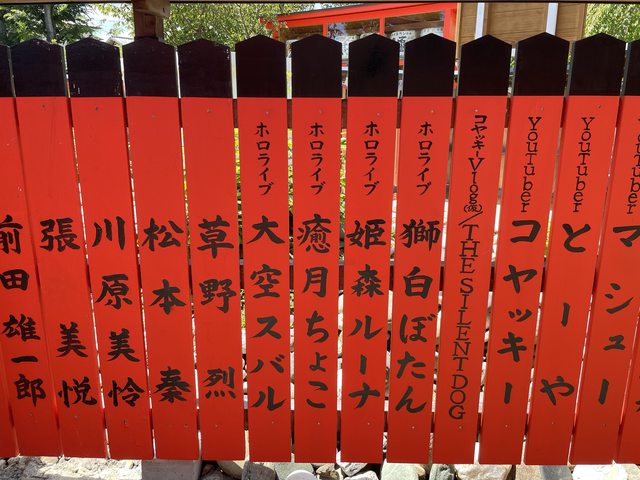 前田 雄一郎
張 美悦
川原 美怜
松本 秦
草野 烈
ホロライブ 大空スバル
ホロライブ 癒月ちょこ
ホロライブ 姫森ルーナ
ホロライブ 獅白ぼたん
コヤッキーVlog(仮)/THE SILENT DOG
YouTuber コヤッキー
YouTuber とーや
YouTuber マシュー